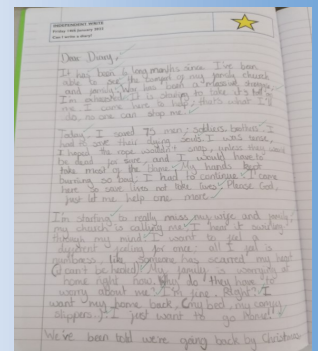 INDEPENDENT WRITE
Friday 14th January 2022
Can I write a diary?
Dear Diary,
It has been 6 long months since I've been
able to see the comfort of my family church
and family, here has been a massive change,
I'm exhausted. It is starting to take its toll on
me. I came here to help, that's what I'll
do, no one can stop me.
Today, I saved 75 men; soldiers bodies. I
had to save their dying souls. I was tense,
I hoped the rope wouldn't snap, unless they would
be dead for sure, and I would have to
take most of the blame. My hands kept
burning so bad, I had to continue. I came
here to save lives not take lives! Please God,
just let me help one more.
I'm starting to really miss my wife and family,
my church is calling me. I hear it running
through my mind. I want to feel a
different feeling for once, all I feel is
numbness, like someone has scarred my heart
(it can't be healed). My family is worrying at
home right now. Why do they have to
worry about me? I'm fine. Right? I
want my home back, (my bed, my comfy
slippers). I just want to go home!
We've been told we're going back by Christmas